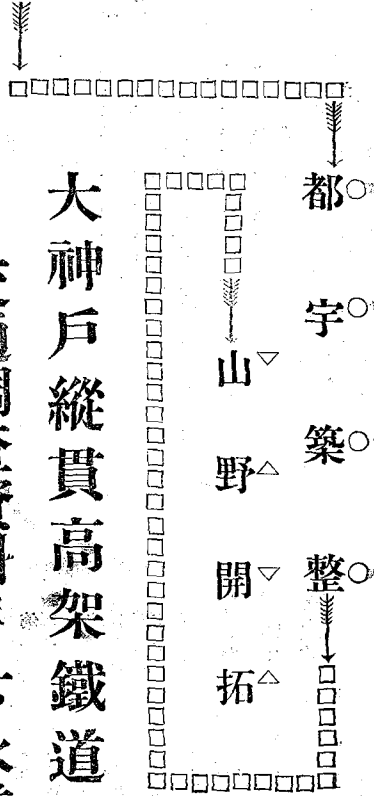 都宇築整
山野開拓
大神戶縱貫高架鐵道